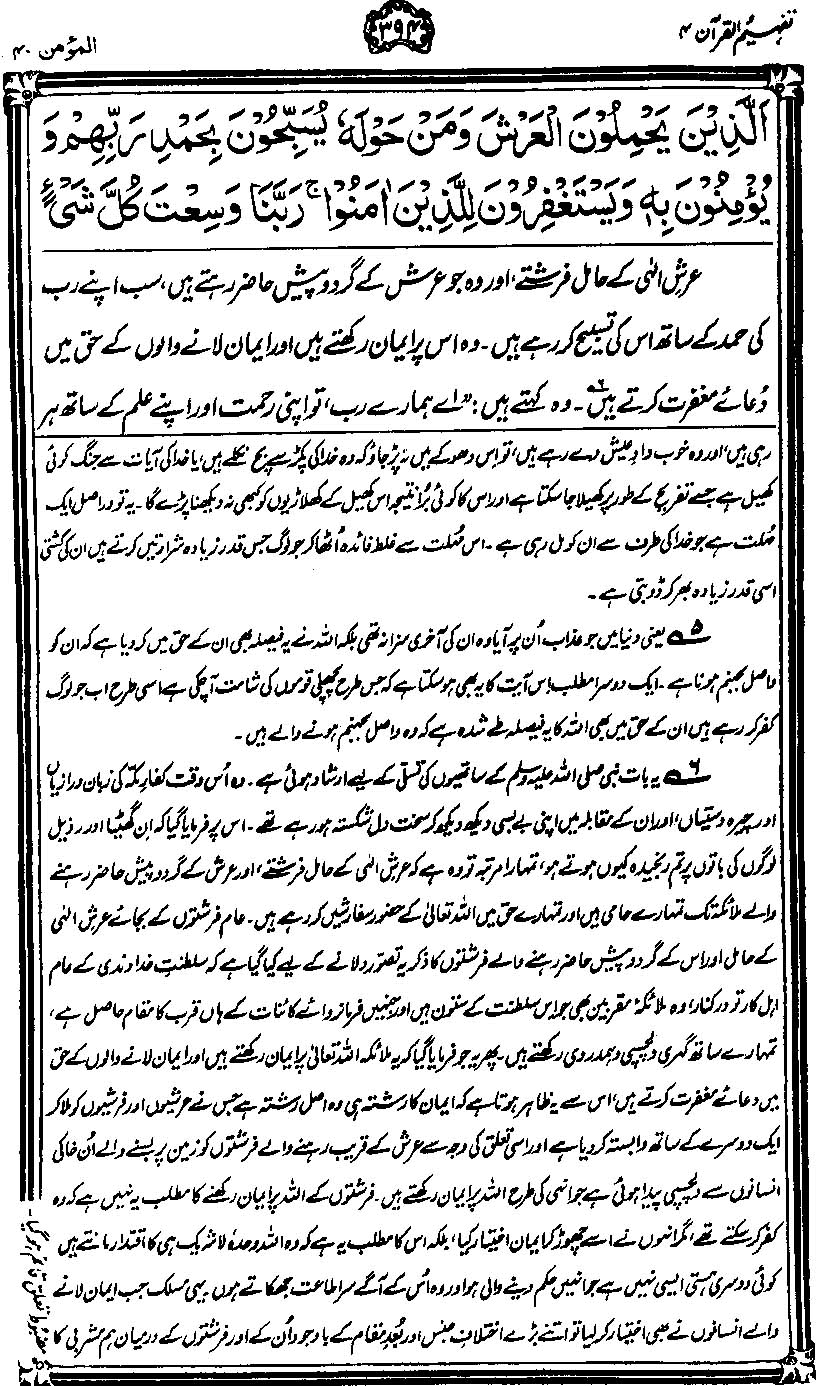 تفہیم القرآن ۴
۳۹۴
المؤمن ۴۰
اَلَّذِیْنَ یَحْمِلُوْنَ الْعَرْشَ وَمَنْ حَوْلَهٗ یُسَبِّحُوْنَ بِحَمْدِ رَبِّهِمْ وَ
یُؤْمِنُوْنَ بِهٖ وَیَسْتَغْفِرُوْنَ لِلَّذِیْنَ اٰمَنُوْا ۚ رَبَّنَا وَسِعْتَ كُلَّ شَیْءٍ
عرشِ الٰہی کے حامل فرشتے، اور وہ جو عرش کے گرد و پیش حاضر رہتے ہیں، سب اپنے رب
کی حمد کے ساتھ اس کی تسبیح کر رہے ہیں۔ وہ اس پر ایمان رکھتے ہیں اور ایمان لانے والوں کے حق میں
دُعائے مغفرت کرتے ہیں۶۔ وہ کہتے ہیں: ”اے ہمارے رب، تو اپنی رحمت اور اپنے علم کے ساتھ ہر
رہی ہیں، اور وہ خوب دادِ عیش دے رہے ہیں، تو اس دھوکے میں نہ پڑ جاؤ کہ وہ خدا کی پکڑ سے بچ نکلے ہیں، یا خدا کی آیات سے جنگ کوئی
کھیل ہے جسے تفریح کے طور پر کھیلا جا سکتا ہے اور اس کا کوئی بُرا نتیجہ اس کھیل کے کھلاڑیوں کو کبھی نہ دیکھنا پڑے گا۔ یہ تو دراصل ایک
مُہلت ہے جو خدا کی طرف سے ان کو مل رہی ہے۔ اس مُہلت سے غلط فائدہ اُٹھا کر جو لوگ جس قدر زیادہ شرارتیں کرتے ہیں ان کی کشتی
اسی قدر زیادہ بھر کر ڈوبتی ہے۔
۵ یعنی دنیا میں جو عذاب اُن پر آیا وہ ان کی آخری سزا نہ تھی بلکہ اللہ نے یہ فیصلہ بھی ان کے حق میں کر دیا ہے کہ ان کو
واصل بجہنم ہونا ہے۔ ایک دوسرا مطلب اس آیت کا یہ بھی ہو سکتا ہے کہ جس طرح پچھلی قوموں کی شامت آ چکی ہے اسی طرح اب جو لوگ
کفر کر رہے ہیں ان کے حق میں بھی اللہ کا یہ فیصلہ طے شدہ ہے کہ وہ واصل بجہنم ہونے والے ہیں۔
۶ یہ بات نبی صلی اللہ علیہ وسلم کے ساتھیوں کی تسلی کے لیے ارشاد ہوئی ہے۔ وہ اُس وقت کفارِ مکہ کی زبان درازیاں
اور چیرہ دستیاں، اور ان کے مقابلہ میں اپنی بے بسی دیکھ دیکھ کر سخت دل شکستہ ہو رہے تھے۔ اس پر فرمایا گیا کہ ان گھٹیا اور رذیل
لوگوں کی باتوں پر تم رنجیدہ کیوں ہوتے ہو، تمہارا مرتبہ تو وہ ہے کہ عرشِ الٰہی کے حامل فرشتے، اور عرش کے گرد و پیش حاضر رہنے
والے ملائکہ تک تمہارے حامی ہیں اور تمہارے حق میں اللہ تعالیٰ کے حضور سفارشیں کر رہے ہیں۔ عام فرشتوں کے بجائے عرشِ الٰہی
کے حامل اور اس کے گرد و پیش حاضر رہنے والے فرشتوں کا ذکر یہ تصور دلانے کے لیے کیا گیا ہے کہ سلطنتِ خداوندی کے عام
اہل کار تو درکنار، وہ ملائکۂ مقربین بھی جو اس سلطنت کے ستون ہیں اور جنہیں فرمانروائے کائنات کے ہاں قرب کا مقام حاصل ہے،
تمہارے ساتھ گہری دلچسپی و ہمدردی رکھتے ہیں۔ پھر یہ جو فرمایا گیا کہ یہ ملائکہ اللہ تعالیٰ پر ایمان رکھتے ہیں اور ایمان لانے والوں کے حق
میں دعائے مغفرت کرتے ہیں، اس سے یہ ظاہر ہوتا ہے کہ ایمان کا رشتہ ہی وہ اصل رشتہ ہے جس نے عرشیوں اور فرشیوں کو ملا کر
ایک دوسرے کے ساتھ وابستہ کر دیا ہے اور اسی تعلق کی وجہ سے عرش کے قریب رہنے والے فرشتوں کو زمین پر بسنے والے اُن خاکی
انسانوں سے دلچسپی پیدا ہوئی ہے جو انہی کی طرح اللہ پر ایمان رکھتے ہیں۔ فرشتوں کے اللہ پر ایمان رکھنے کا مطلب یہ نہیں ہے کہ وہ
کفر کر سکتے تھے، مگر انہوں نے اسے چھوڑ کر ایمان اختیار کیا، بلکہ اس کا مطلب یہ ہے کہ وہ اللہ وحدہٗ لا شریک ہی کا اقتدار مانتے ہیں
کوئی دوسری ہستی ایسی نہیں ہے جو انہیں حکم دینے والی ہو اور وہ اُس کے آگے سرِ اطاعت جھکاتے ہوں یہی مسلک جب ایمان لانے
والے انسانوں نے بھی اختیار کر لیا تو اتنے بڑے اختلافِ جنس اور بُعدِ مقام کے باوجود اُن کے اور فرشتوں کے درمیان ہم مشربی کا
مضبوط تعلق قائم ہو گیا۔